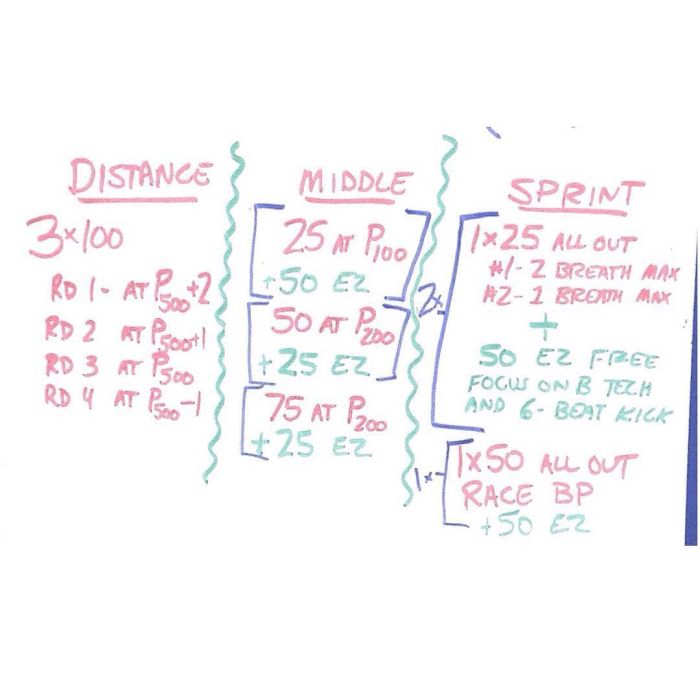 DISTANCE
3x100
RD 1- AT P500+2
RD 2 AT P500+1
RD 3 AT P500
RD 4 AT P500-1
MIDDLE
25 AT P100
+50 EZ
50 AT P200
+25 EZ
75 AT P200
+25 EZ
SPRINT
2x
1x25 ALL OUT
#1-2 BREATH MAX
#2-1 BREATH MAX
+
50 EZ FREE
FOCUS ON B TECH
AND 6-BEAT KICK
1x
1x50 ALL OUT
RACE BP
+50 EZ